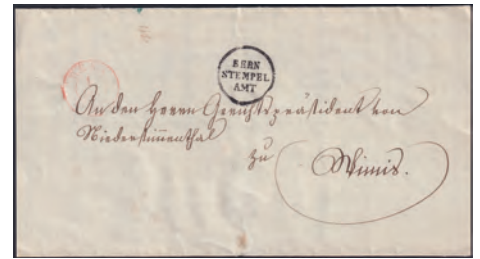 BERN
STEMPEL
AMT
An den Herrn Gerichtspräsident von
Niedersimmenthal
zu
Wimis.